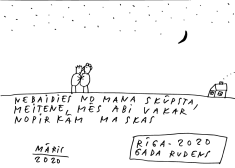 NEBAIDIES NO MANA SKŪPSTA,
MEITENE, MĒS ABI VAKAR
NOPIRKĀM MASKAS
MĀRIS
2020
RĪGA - 2020
GADA RUDENS